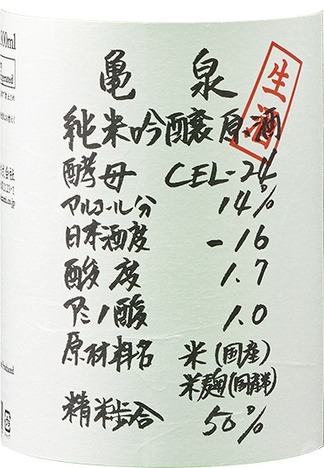 亀 泉
生酒
純米吟醸原酒
酵母 CEL-24
アルコール分 14%
日本酒度 -16
酸度 1.7
アミノ酸 1.0
原材料名 米(国産)
米麹(国産米)
精米歩合 50%